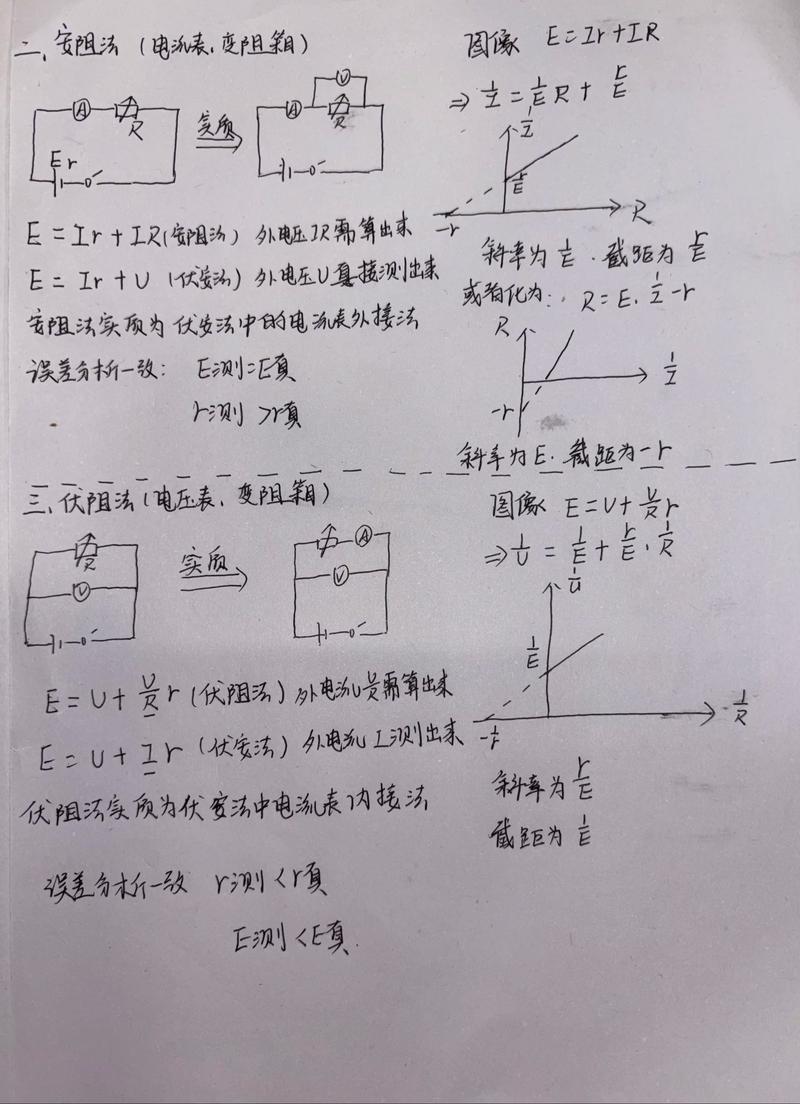 二、安阻法（电流表、变阻箱）
A
R
E r
实质
V
A
R
E=Ir+IR（安阻法）外电压IR需算出来
E=Ir+U（伏安法）外电压U直接测出来
安阻法实质为伏安法中的电流表外接法
误差分析一致：E测=E真
r测>r真
图像 E=Ir+IR
⇒ 1/I = 1/E R + r/E
1/I
r/E
-r
R
斜率为 1/E . 截距为 r/E
或者化为：R=E. 1/I -r
R
1/I
-r
斜率为E. 截距为-r
三、伏阻法（电压表、变阻箱）
R
V
实质
A
V
E=U+ U/R r（伏阻法）外电流U/R需算出来
E=U+Ir（伏安法）外电流I测出来
伏阻法实质为伏安法中电流表内接法
误差分析一致 r测<r真
E测<E真.
图像 E=U+ U/R r
⇒ 1/U = 1/E + r/E . 1/R
1/U
1/E
-1/r
1/R
斜率为 r/E
截距为 1/E